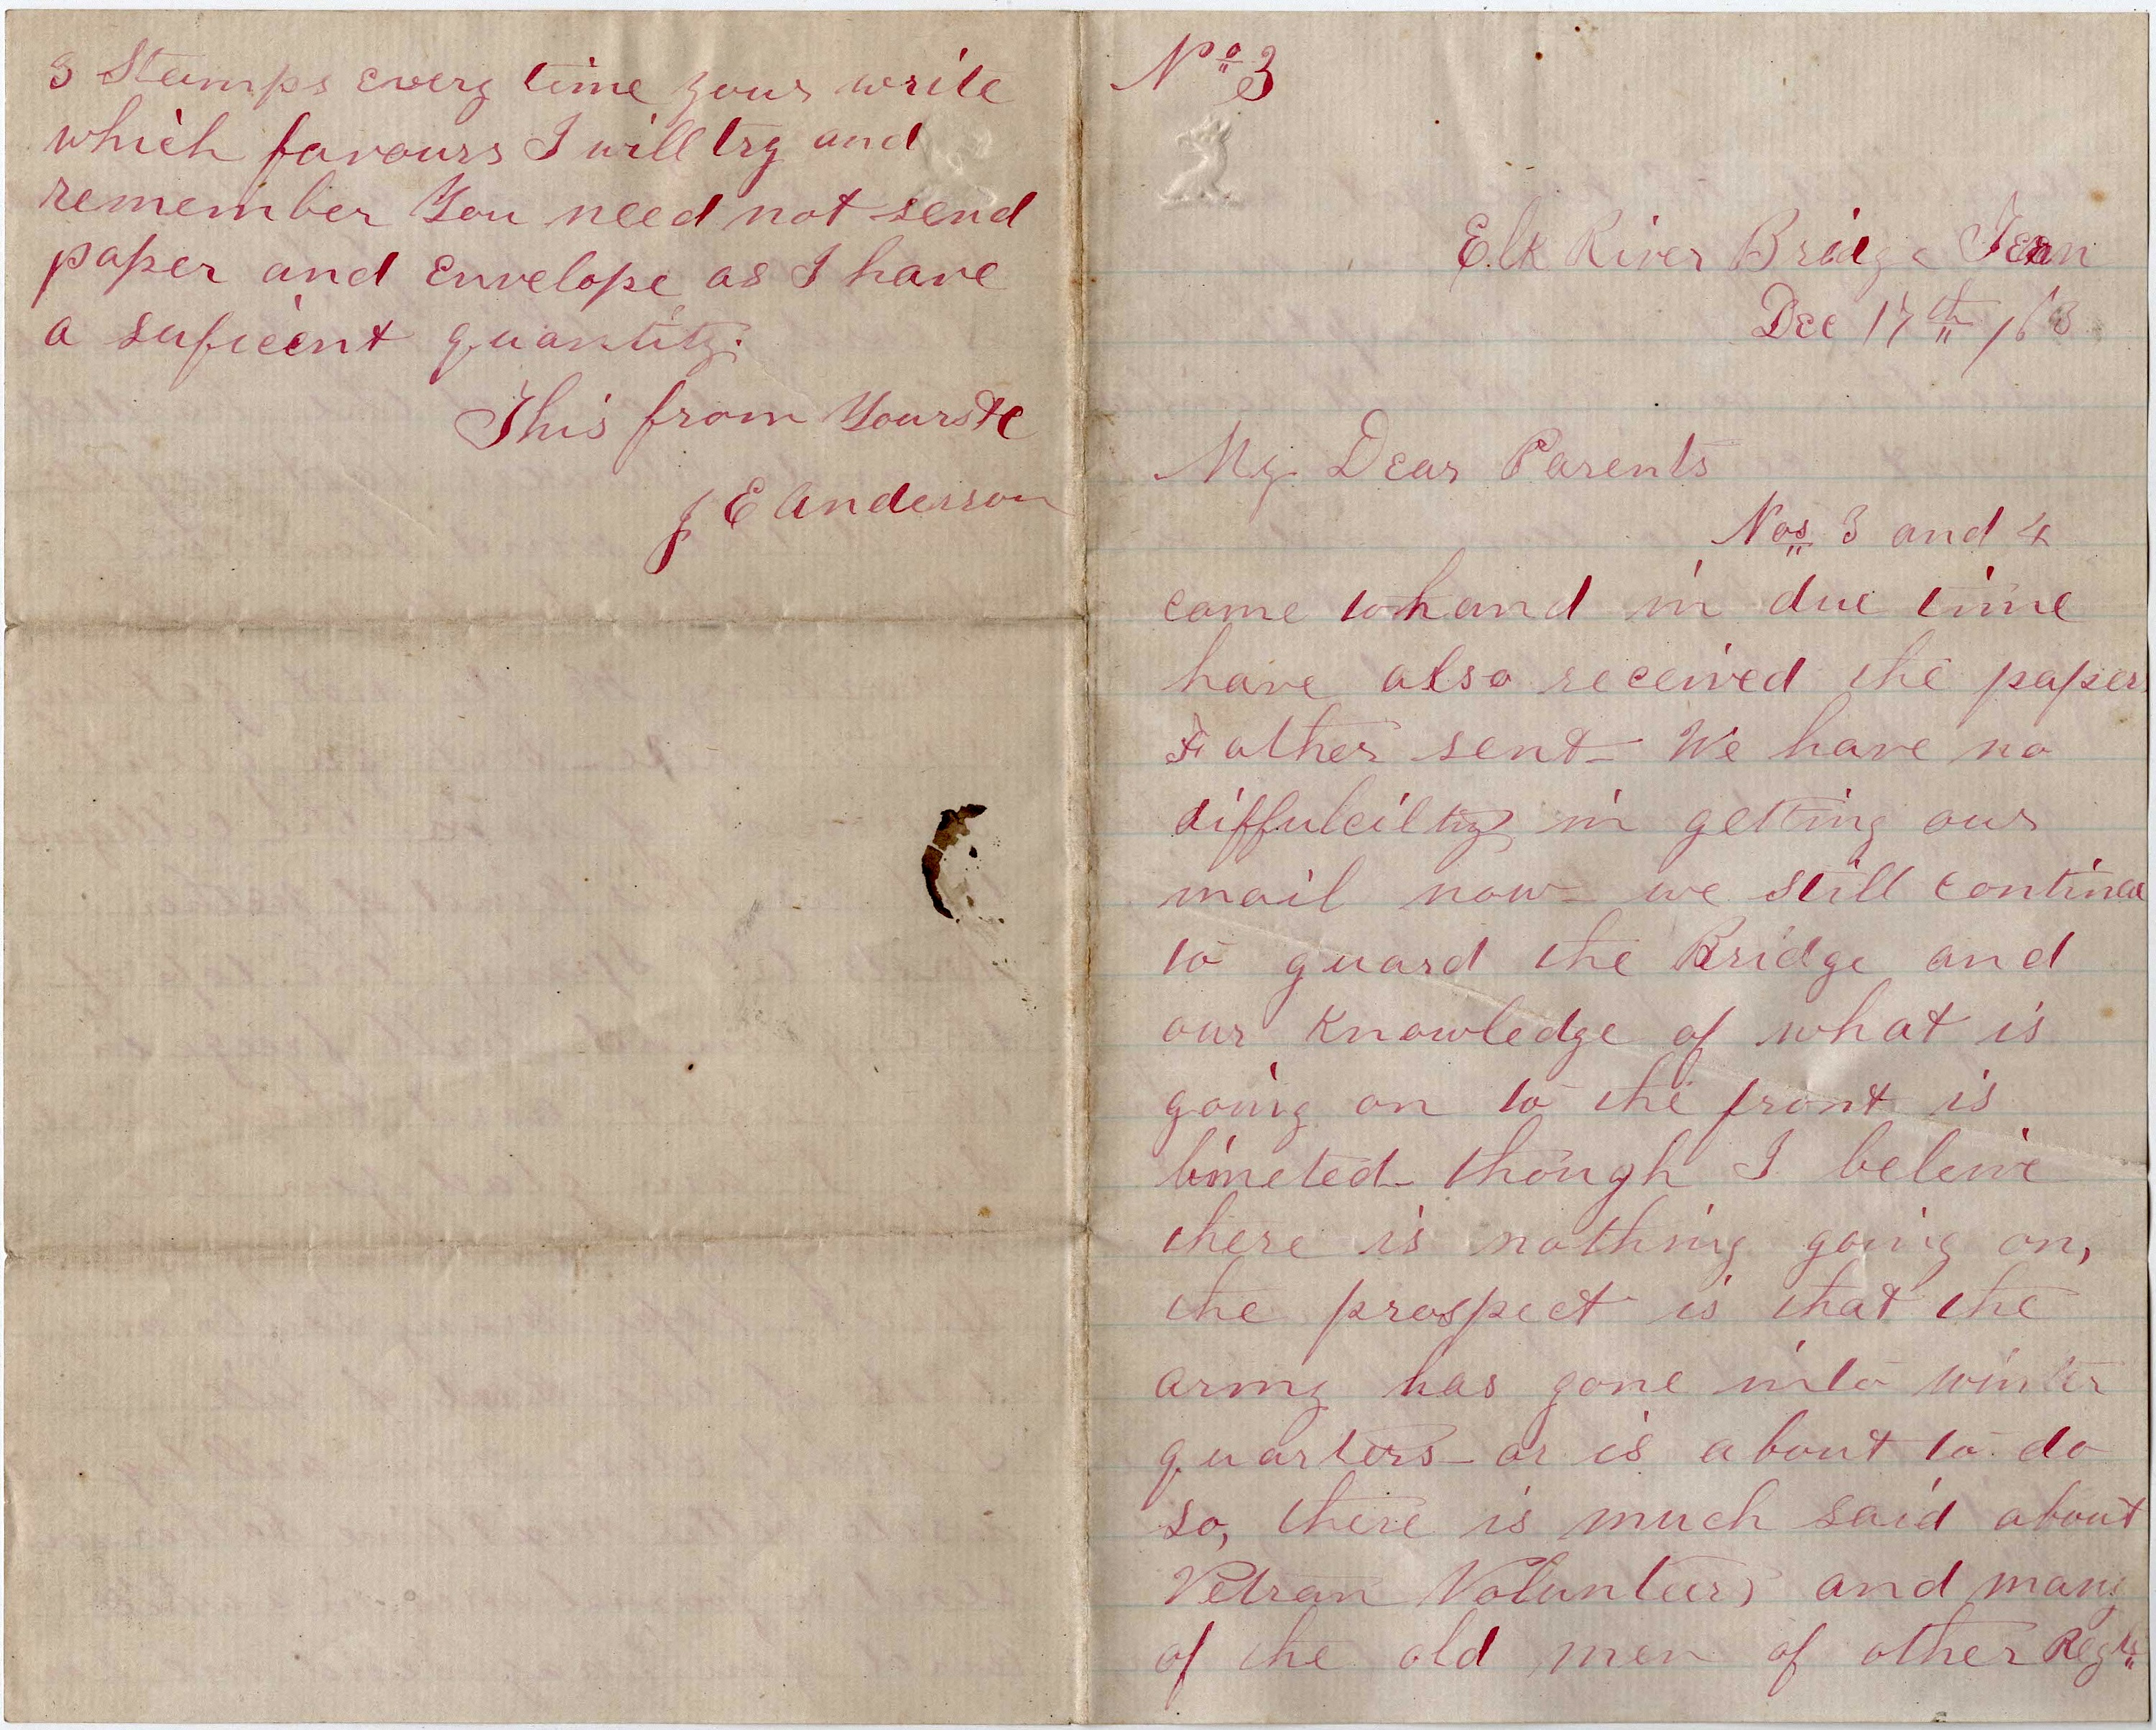 No 3
Elk River Bridge Tenn
Dec 17th /63
My Dear Parents
Nos 3 and 4
came to hand in due time
have also received the papers
Father sent - We have no
diffulcilty in getting our
mail now - we still continue
to guard the Bridge and
our knowledge of what is
going on to the front is
limeted - though I beleive
there is nothing going on,
the prospect is that the
army has gone into winter
quarters - or is about to do
so, there is much said about
Vetran Volunteers and many
of the old men of other Regts
3 Stamps every time your write
which favours I will try and
remember You need not send
paper and Envelope as I have
a suficient quantity.
This from Yours &c
J E Anderson